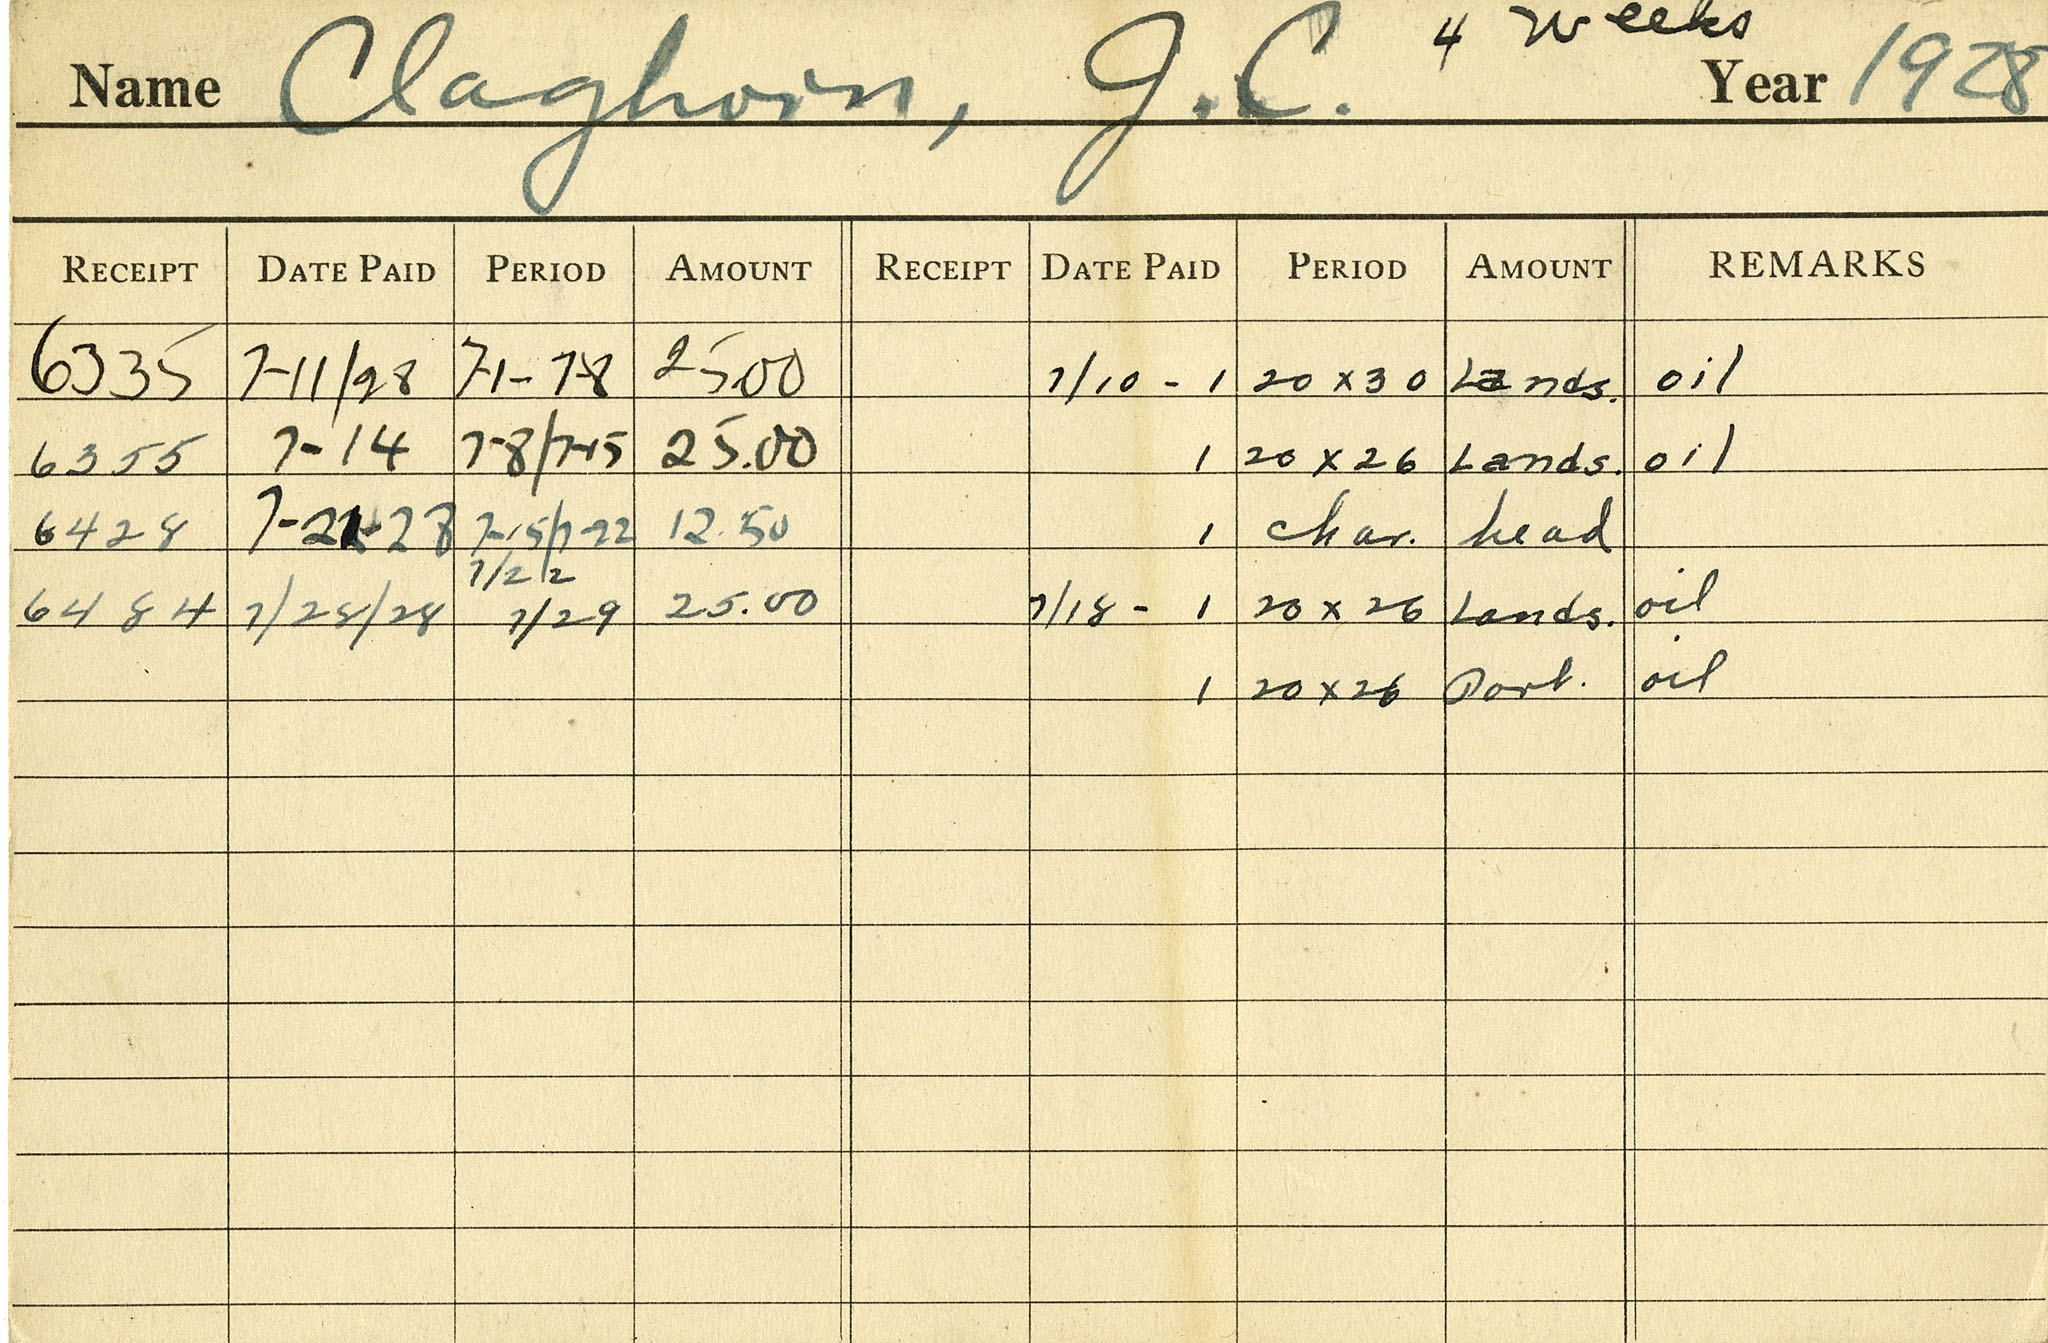 4 weeks
Name Claghorn, J.C. Year 1928
RECEIPT DATE PAID PERIOD AMOUNT RECEIPT DATE PAID PERIOD AMOUNT REMARKS
6335 7-11/28 7-1-7-8 25.00 7/10 - 1 20 x 30 Lands. oil
6355 7-14 7-8/7-15 25.00 1 20 x 26 Lands. oil
6428 7-21-28 7-15/7-22 12.50 1 Char. head
7/22
6484 7/28/28 7/29 25.00 7/18 - 1 20 x 26 Lands. oil
1 20 x 26 Port. oil